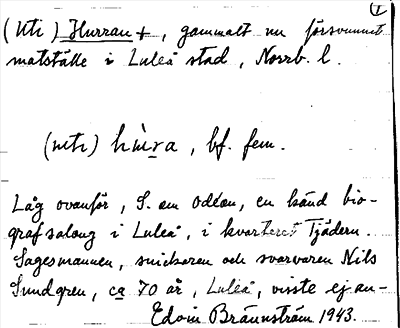 1
(Uti) Hurran +, gammalt nu försvunnet
matställe i Luleå stad, Norrb. l.
(uti) hùra, bf. fem.
Låg ovanför, S. om Odéon, en känd bio-
grafsalong i Luleå, i kvarteret Tjädern.
Sagesmannen, snickaren och svarvaren Nils
Sundgren, ca 70 år, Luleå, visste ej an-
Edvin Brännström 1943.